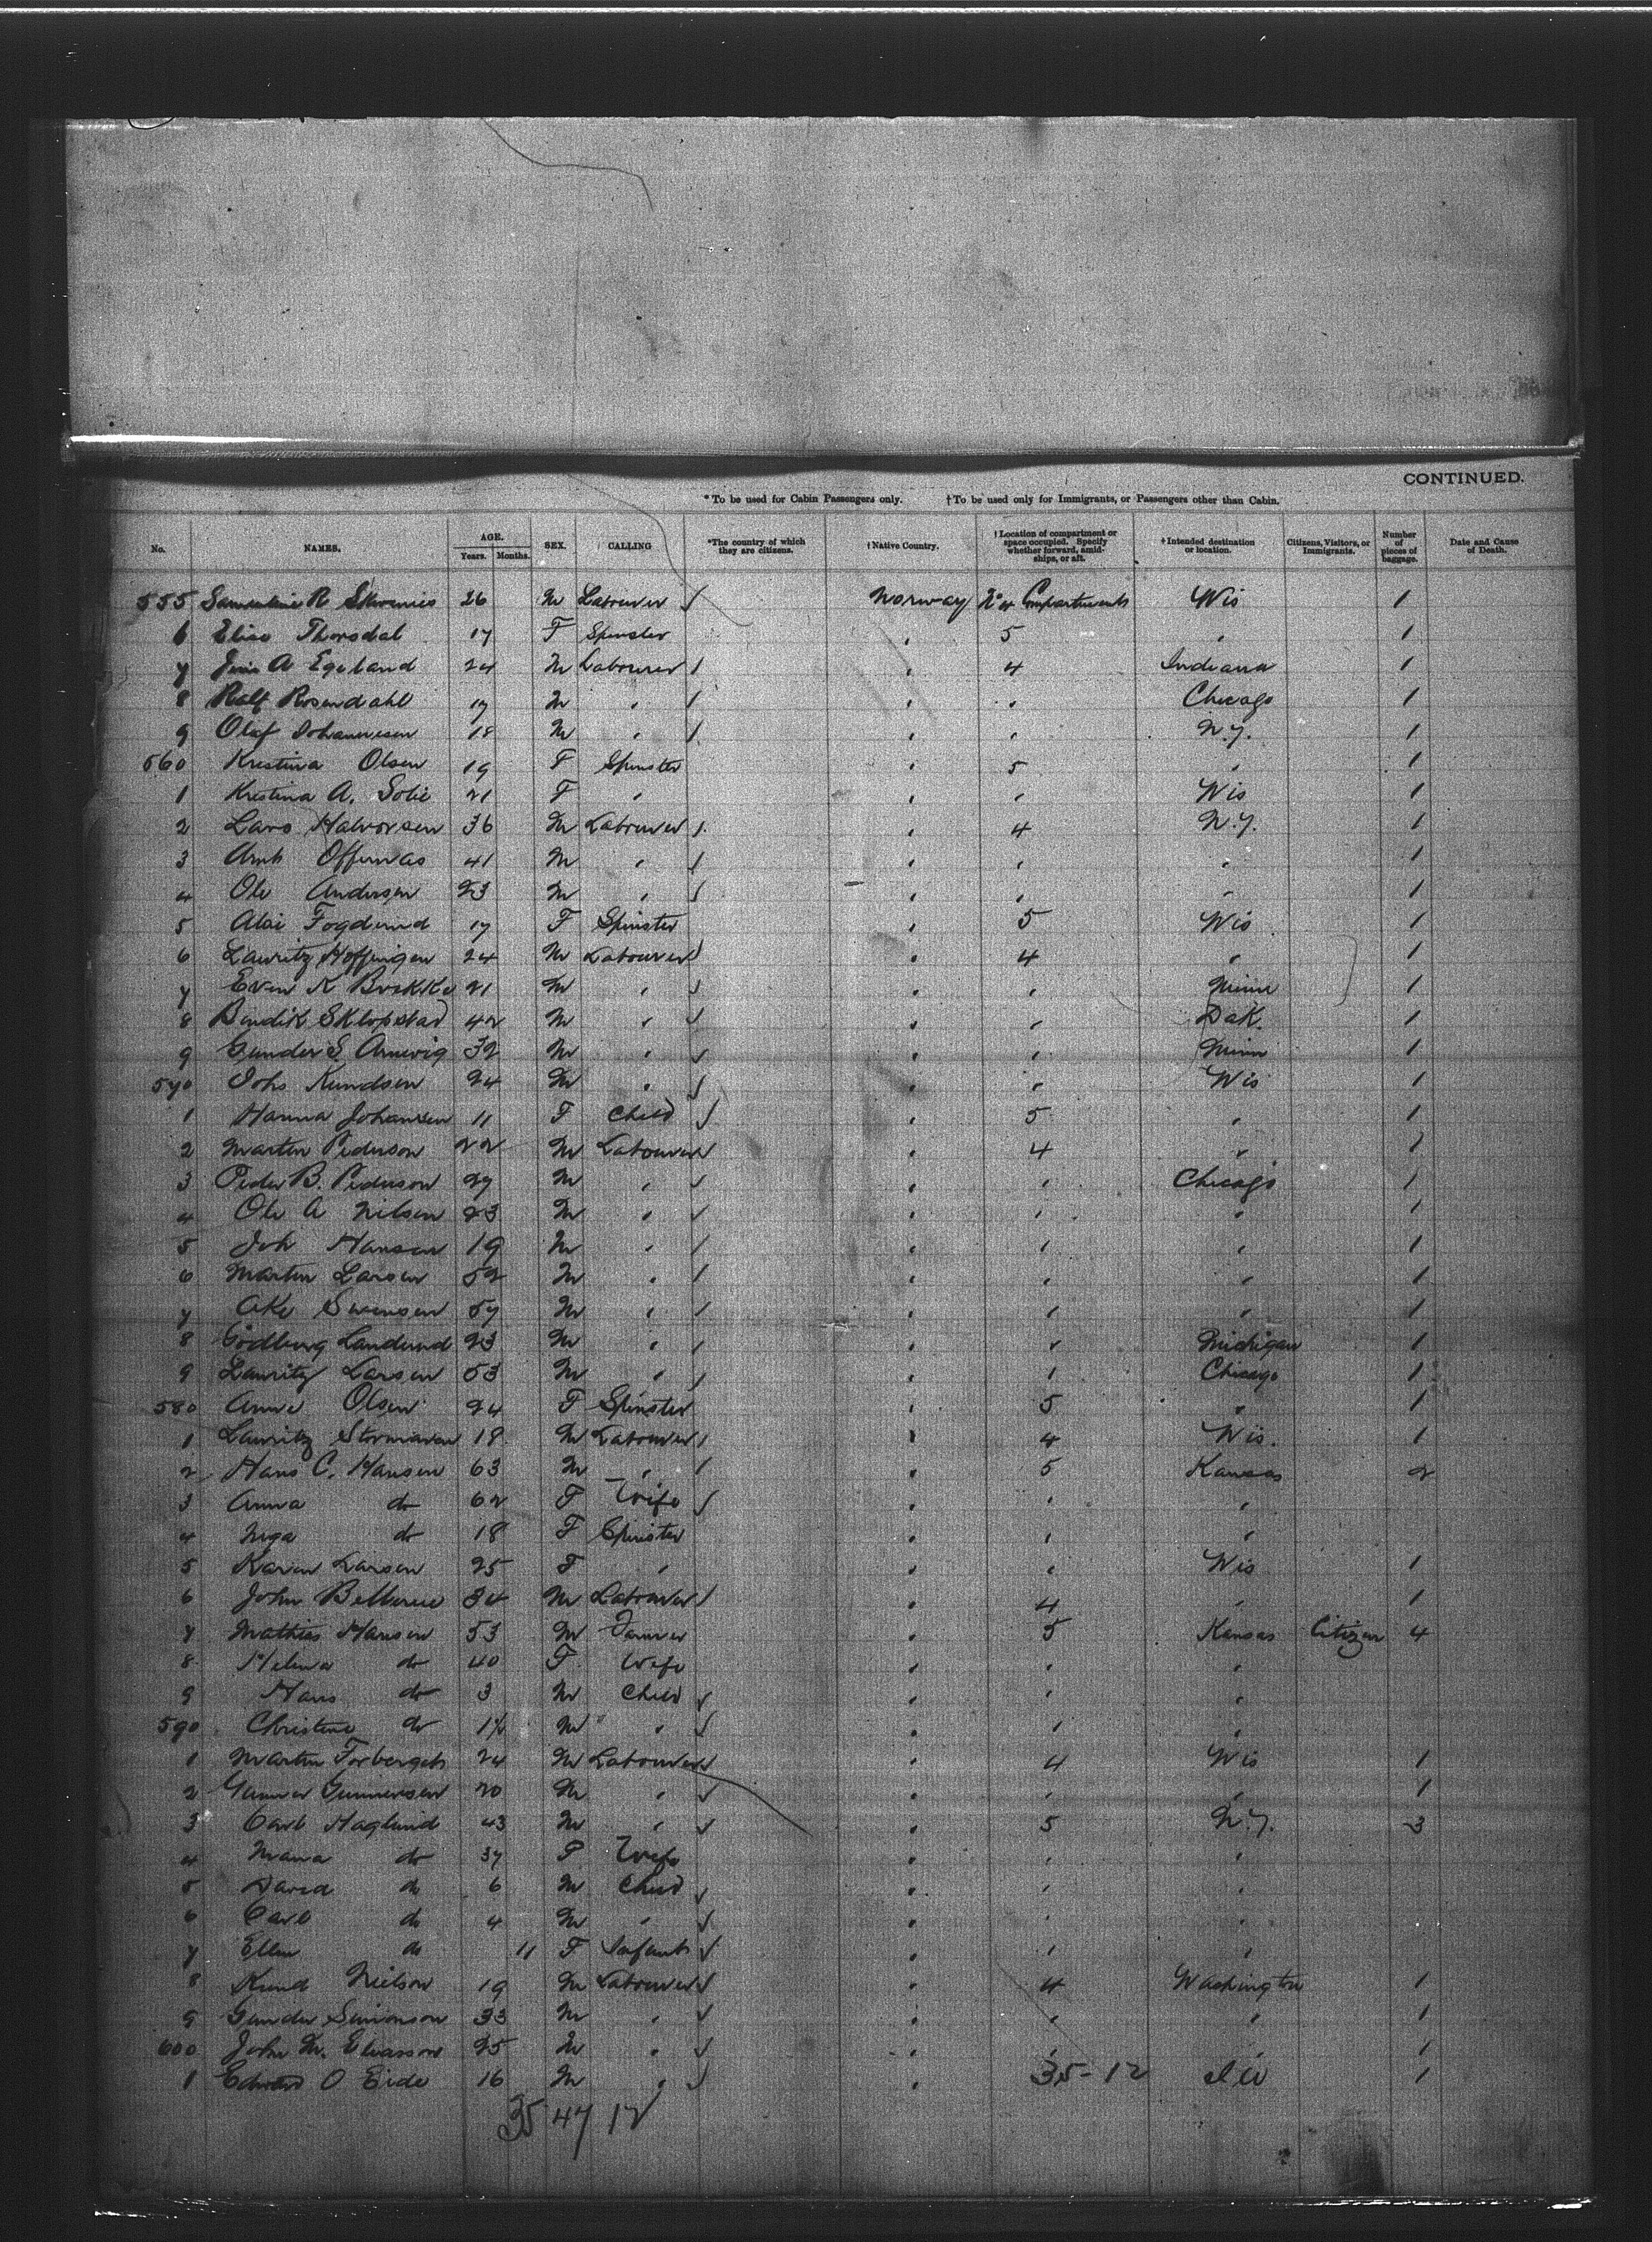 CONTINUED.
* To be used for Cabin Passengers only. † To be used only for Immigrants, or Passengers other than Cabin.
No. NAMES. AGE. Years. Months. SEX. CALLING *The country of which they are citizens. †Native Country. †Location of compartment or space occupied. Specify whether forward, amidships, or aft. †Intended destination or location. Citizens, Visitors, or Immigrants. Number of pieces of baggage. Date and Cause of Death.
555 R 26 M Labourer Norway No 4 Compartments Wis 1
6 Elise Thorsdal 17 F Spinster " 5 " 1
7 A Egeland 24 M Labourer " 4 Indiana 1
8 Ralf Rosendahl 17 M " " " Chicago 1
9 Olaf Johannesen 18 M " " " N.Y. 1
560 Kristina Olsen 19 F Spinster " 5 " 1
1 Kristina A. Solie 21 F " " " Wis 1
2 Lars Halvorsen 36 M Labourer " 4 N.Y. 1
3 41 M " " " " 1
4 Ole Andersen 23 M " " " " 1
5 17 F Spinster " 5 Wis 1
6 Lauritz 24 M Labourer " 4 " 1
7 Even K Brokke 21 M " " " Minn 1
8 Bendik Sklopstad 42 M " " " Dak. 1
9 Gunder S. 32 M " " " Minn 1
570 Johs Kundsen 24 M " " " Wis 1
1 Hanna Johansen 11 F Child " 5 " 1
2 Martin Pederson 22 M Labourer " 4 " 1
3 Peder B. Pederson 27 M " " " Chicago 1
4 Ole A Nilsen 23 M " " " " 1
5 Joh Hansen 19 M " " " " 1
6 Martin Larsen 52 M " " " " 1
7 Ake Swensen 57 M " " " " 1
8 Landund 23 M " " " Michigan 1
9 Lauritz Larsen 53 M " " " Chicago 1
580 Anne Olsen 24 F Spinster " 5 " 1
1 Lauritz 18 M Labourer " 4 Wis. 1
2 Hans C. Hansen 63 M " " 5 Kansas 2
3 Anna do 62 F Wife " " "
4 do 18 F Spinster " " "
5 Karen Larsen 25 F " " " Wis 1
6 John 34 M Labourer " 4 " 1
7 Mathias Hansen 53 M Farmer " 5 Kansas Citizen 4
8 Helena do 40 F Wife " " "
9 Hans do 3 M Child " " "
590 Christine do 1½ M " " " "
1 Martin 24 M Labourer " 4 Wis 1
2 Gunnersen 20 M " " " " 1
3 Carl Haglund 43 M " " 5 N.Y. 3
4 do 37 F Wife " " "
5 David do 6 M Child " " "
6 Carl do 4 M " " " "
7 Ellen do 11 F Infant " " "
8 Kund Nielson 19 M Labourer " 4 Washington 1
9 Gunder Simonson 33 M " " " " 1
600 John M. Eliasson 25 M " " " " 1
1 Edward O Eide 16 M " " 35-12 1
35 47 12